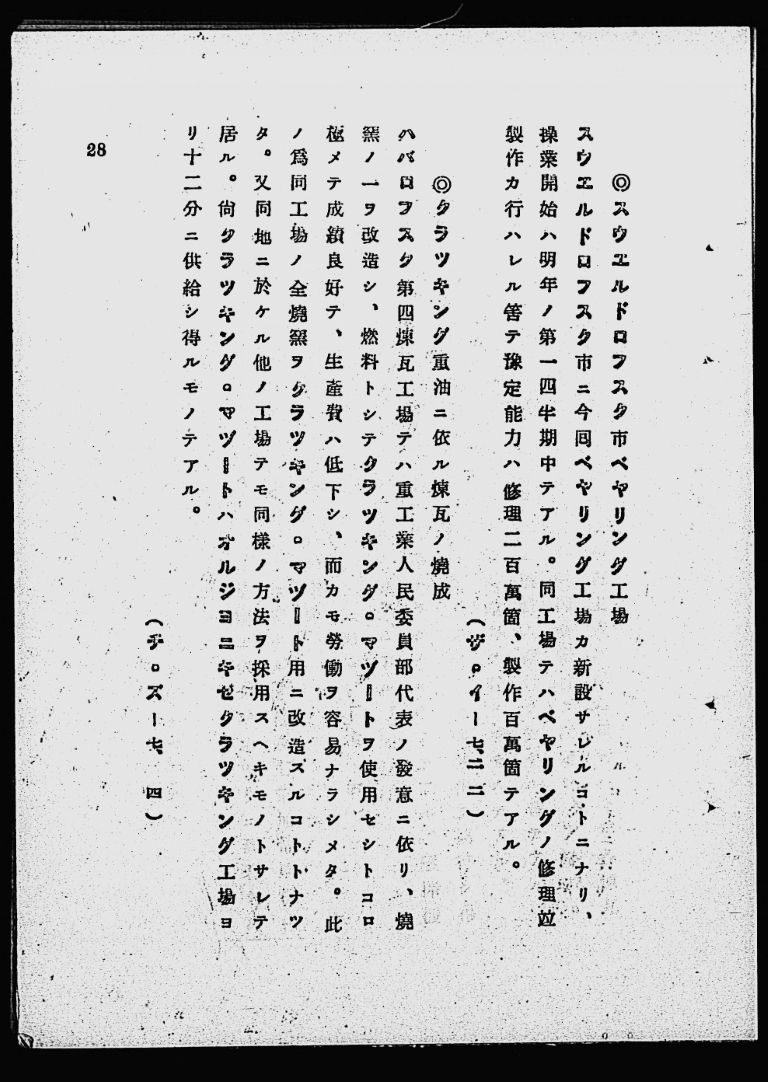 ◎スウエルドロフスク市ベヤリング工場
スウエルドロフスク市ニ今囘ベヤリング工場カ新設サレルコトニナリ、
操業開始ハ明年ノ第一四半期中テアル。同工場テハベヤリングノ修理竝
製作カ行ハレル筈テ豫定能力ハ修理二百萬箇、製作百萬箇テアル。
(ザ。イー七、二二)
◎クラツキング重油ニ依ル煉瓦ノ燒成
ハバロフスク第四煉瓦工場テハ重工業人民委員部代表ノ發意ニ依リ、燒
窯ノ一ヲ改造シ、燃料トシテクラツキング。マヅートヲ使用セシトコロ
極メテ成績良好テ、生產費ハ低下シ、而カモ勞働ヲ容易ナラシメタ。此
ノ爲同工場ノ全燒窯ヲクラツキング。マヅート用ニ改造スルコトトナツ
タ。又同地ニ於ケル他ノ工場テモ同樣ノ方法ヲ採用スヘキモノトサレテ
居ル。尙クラツキング。マヅートハオルジヨニキゼクラツキング工場ヨ
リ十二分ニ供給シ得ルモノテアル。
(チ。ズー七、四)
28